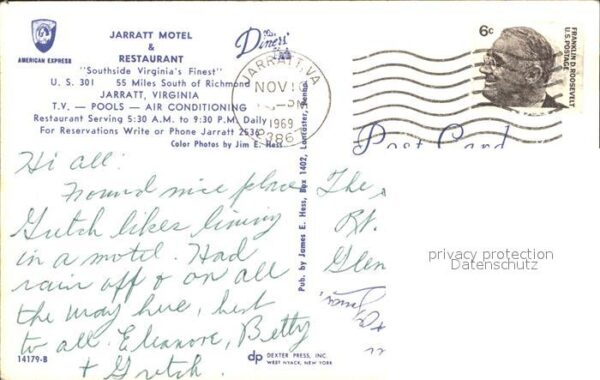 AMERICAN EXPRESS
JARRATT MOTEL
&
RESTAURANT
"Southside Virginia's Finest"
U. S. 301 55 Miles South of Richmond
JARRATT, VIRGINIA
T.V. — POOLS — AIR CONDITIONING
Restaurant Serving 5:30 A.M. to 9:30 P.M. Daily
For Reservations Write or Phone Jarratt 2536
Color Photos by Jim E. Hess
Hi all:
Found nice place
Gretch likes living
in a motel. Had
rain off & on all
the way here, best
to all. Eleanore, Betty
+ Gretch.
14179-B
Pub. by James E. Hess, Box 1402, Lancaster, Penna.
dp DEXTER PRESS, INC.
WEST NYACK, NEW YORK
The Diners'
JARRATT, VA
NOV 16
PM
1969
6c
FRANKLIN D. ROOSEVELT
U.S. POSTAGE
Post Card
The
Rt.
Glen
privacy protection
Datenschutz